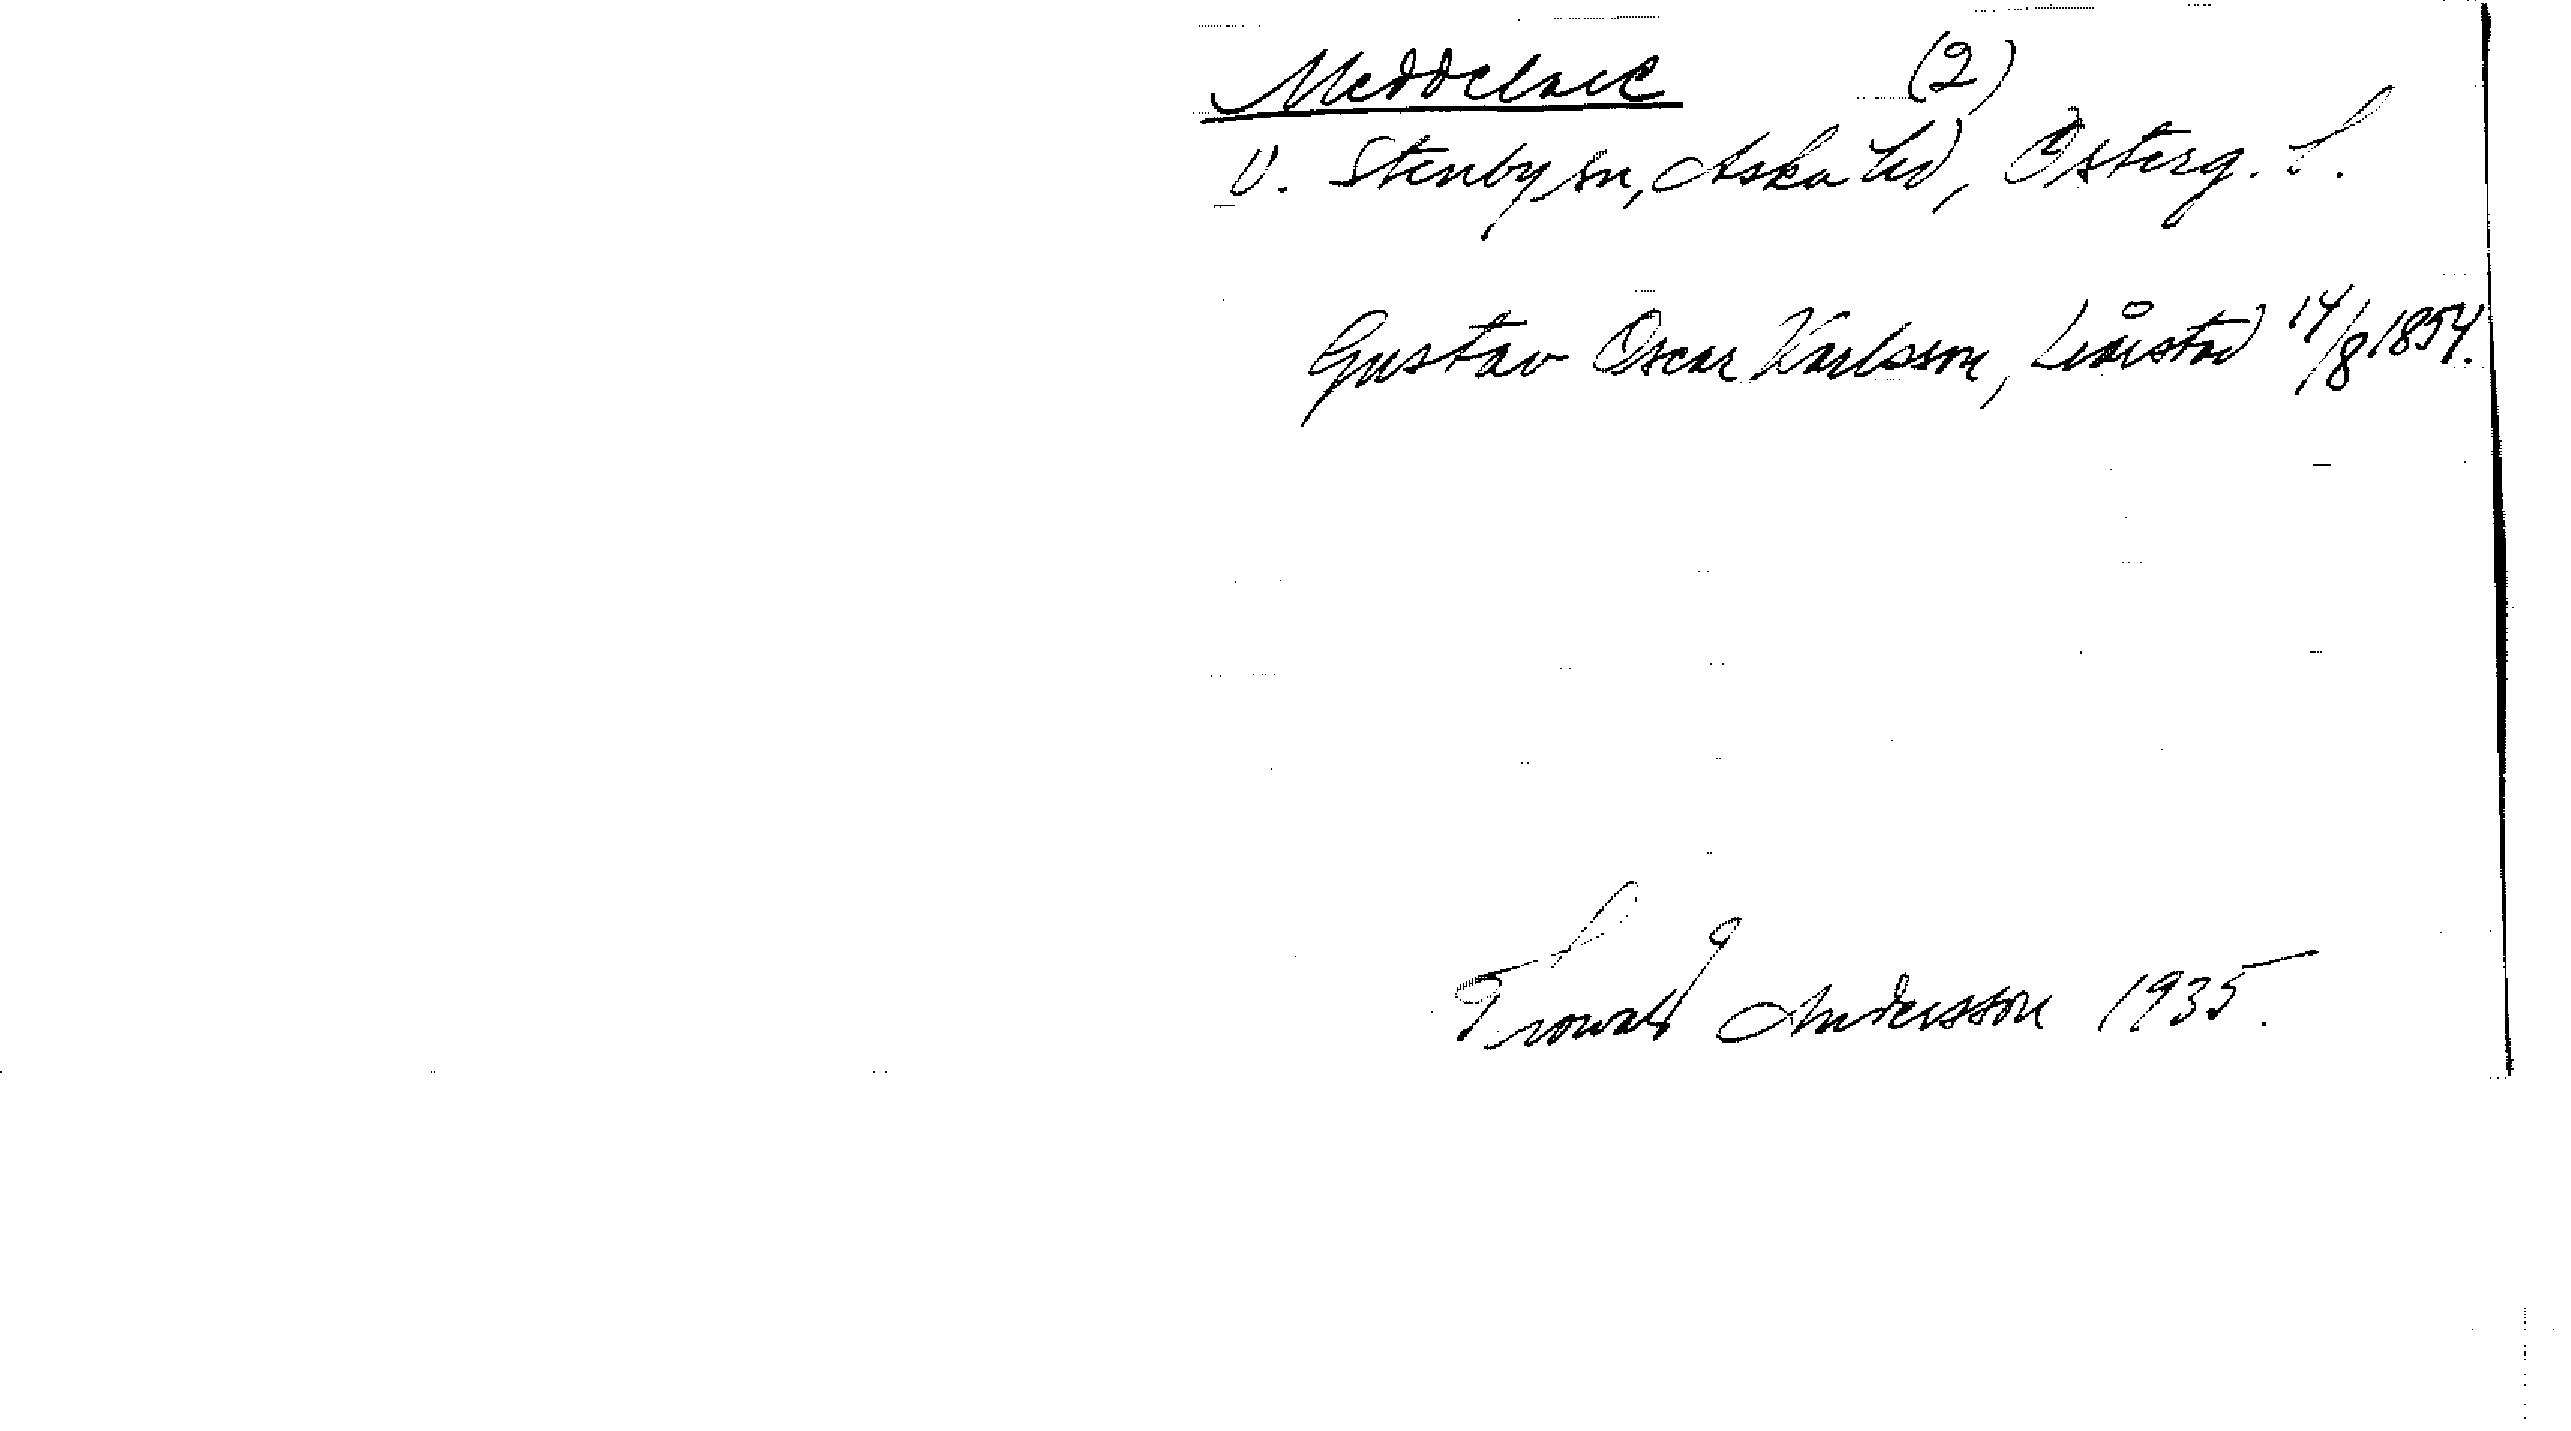 Meddelare (2)
V. Stenby sn, Aska hd, Österg. l.
Gustav Oscar Karlsson, Lårstad 14/8 1854.
Trowald Andersson 1935.